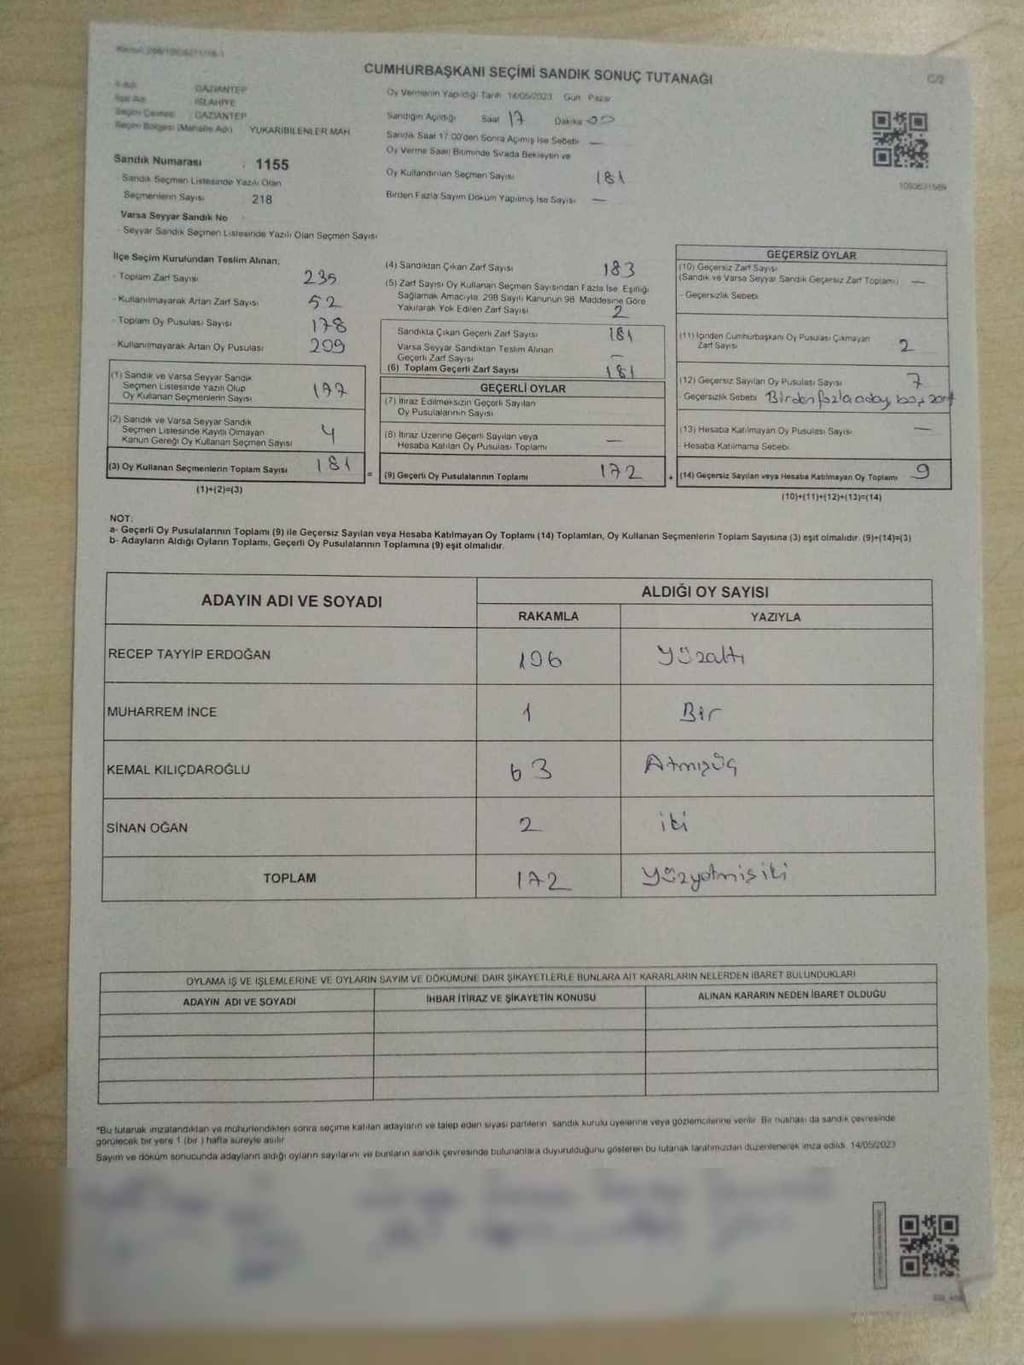 CUMHURBAŞKANI SEÇİMİ SANDIK SONUÇ TUTANAĞI
C/2
GAZİANTEP
İSLAHİYE
Seçim Çevresi GAZİANTEP
Seçim Bölgesi (Mahalle Adı) YUKARIBİLENLER MAH
Sandık Numarası : 1155
Sandık Seçmen Listesinde Yazılı Olan
Seçmenlerin Sayısı 218
Varsa Seyyar Sandık No
Seyyar Sandık Seçmen Listesinde Yazılı Olan Seçmen Sayısı
Oy Vermenin Yapıldığı Tarih 14/05/2023 Gün Pazar
Sandığın Açıldığı Saat 17 Dakika 00
Sandık Saat 17:00'den Sonra Açılmış İse Sebebi —
Oy Verme Saati Bitiminde Sırada Bekleyen ve
Oy Kullandırılan Seçmen Sayısı 181
Birden Fazla Sayım Döküm Yapılmış İse Sayısı —
İlçe Seçim Kurulundan Teslim Alınan;
- Toplam Zarf Sayısı 235
- Kullanılmayarak Artan Zarf Sayısı 52
- Toplam Oy Pusulası Sayısı 178
- Kullanılmayarak Artan Oy Pusulası 209
(1) Sandık ve Varsa Seyyar Sandık
Seçmen Listesinde Yazılı Olup
Oy Kullanan Seçmenlerin Sayısı 177
(2) Sandık ve Varsa Seyyar Sandık
Seçmen Listesinde Kaydı Olmayan
Kanun Gereği Oy Kullanan Seçmen Sayısı 4
(3) Oy Kullanan Seçmenlerin Toplam Sayısı 181
(1)+(2)=(3)
(4) Sandıktan Çıkan Zarf Sayısı 183
(5) Zarf Sayısı Oy Kullanan Seçmen Sayısından Fazla İse, Eşitliği
Sağlamak Amacıyla, 298 Sayılı Kanunun 98. Maddesine Göre
Yakılarak Yok Edilen Zarf Sayısı 2
Sandıkta Çıkan Geçerli Zarf Sayısı 181
Varsa Seyyar Sandıktan Teslim Alınan
Geçerli Zarf Sayısı —
(6) Toplam Geçerli Zarf Sayısı 181
GEÇERLİ OYLAR
(7) İtiraz Edilmeksizin Geçerli Sayılan
Oy Pusulalarının Sayısı
(8) İtiraz Üzerine Geçerli Sayılan veya
Hesaba Katılan Oy Pusulası Toplamı —
= (9) Geçerli Oy Pusulalarının Toplamı 172
GEÇERSİZ OYLAR
(10) Geçersiz Zarf Sayısı
(Sandık ve Varsa Seyyar Sandık Geçersiz Zarf Toplamı) —
- Geçersizlik Sebebi
(11) İçinden Cumhurbaşkanı Oy Pusulası Çıkmayan
Zarf Sayısı 2
(12) Geçersiz Sayılan Oy Pusulası Sayısı 7
Geçersizlik Sebebi Birden fazla aday, boş zarf
(13) Hesaba Katılmayan Oy Pusulası Sayısı —
- Hesaba Katılmama Sebebi
+ (14) Geçersiz Sayılan veya Hesaba Katılmayan Oy Toplamı 9
(10)+(11)+(12)+(13)=(14)
NOT:
a- Geçerli Oy Pusulalarının Toplamı (9) ile Geçersiz Sayılan veya Hesaba Katılmayan Oy Toplamı (14) Toplamları, Oy Kullanan Seçmenlerin Toplam Sayısına (3) eşit olmalıdır. (9)+(14)=(3)
b- Adayların Aldığı Oyların Toplamı, Geçerli Oy Pusulalarının Toplamına (9) eşit olmalıdır.
ADAYIN ADI VE SOYADI
ALDIĞI OY SAYISI
RAKAMLA YAZIYLA
RECEP TAYYİP ERDOĞAN 106 Yüzaltı
MUHARREM İNCE 1 Bir
KEMAL KILIÇDAROĞLU 63 Atmışüç
SİNAN OĞAN 2 iki
TOPLAM 172 Yüzyetmişiki
OYLAMA İŞ VE İŞLEMLERİNE VE OYLARIN SAYIM VE DÖKÜMÜNE DAİR ŞİKAYETLERLE BUNLARA AİT KARARLARIN NELERDEN İBARET BULUNDUKLARI
ADAYIN ADI VE SOYADI İHBAR İTİRAZ VE ŞİKAYETİN KONUSU ALINAN KARARIN NEDEN İBARET OLDUĞU
*Bu tutanak imzalandıktan ve mühürlendikten sonra seçime katılan adayların ve talep eden siyasi partilerin sandık kurulu üyelerine veya gözlemcilerine verilir. Bir nüshası da sandık çevresinde
görülecek bir yere 1 (bir ) hafta süreyle asılır
Sayım ve döküm sonucunda adayların aldığı oyların sayılarını ve bunların sandık çevresinde bulunanlara duyurulduğunu gösteren bu tutanak tarafımızdan düzenlenerek imza edildi. 14/05/2023